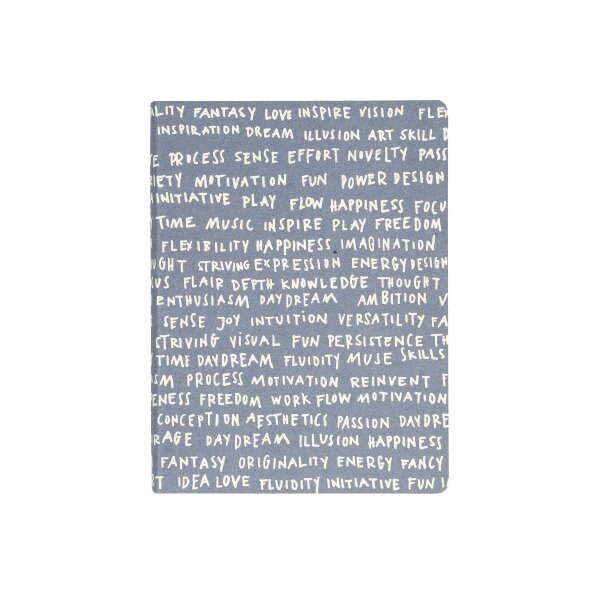 LITY FANTASY LOVE INSPIRE VISION FLEX
INSPIRATION DREAM ILLUSION ART SKILL D
E PROCESS SENSE EFFORT NOVELTY PASS
RIETY MOTIVATION FUN POWER DESIGN
INITIATIVE PLAY FLOW HAPPINESS FOCU
TIME MUSIC INSPIRE PLAY FREEDOM
FLEXIBILITY HAPPINESS IMAGINATION
UGHT STRIVING EXPRESSION ENERGY DESIGN
US FLAIR DEPTH KNOWLEDGE THOUGHT
ENTHUSIASM DAYDREAM AMBITION V
SENSE JOY INTUITION VERSATILITY FA
STRIVING VISUAL FUN PERSISTENCE TH
TIME DAYDREAM FLUIDITY MUSE SKILLS
SM PROCESS MOTIVATION REINVENT F
ENESS FREEDOM WORK FLOW MOTIVATION
CONCEPTION AESTHETICS PASSION DAYDRE
RAGE DAYDREAM ILLUSION HAPPINESS
FANTASY ORIGINALITY ENERGY FANCY
T IDEA LOVE FLUIDITY INITIATIVE FUN I